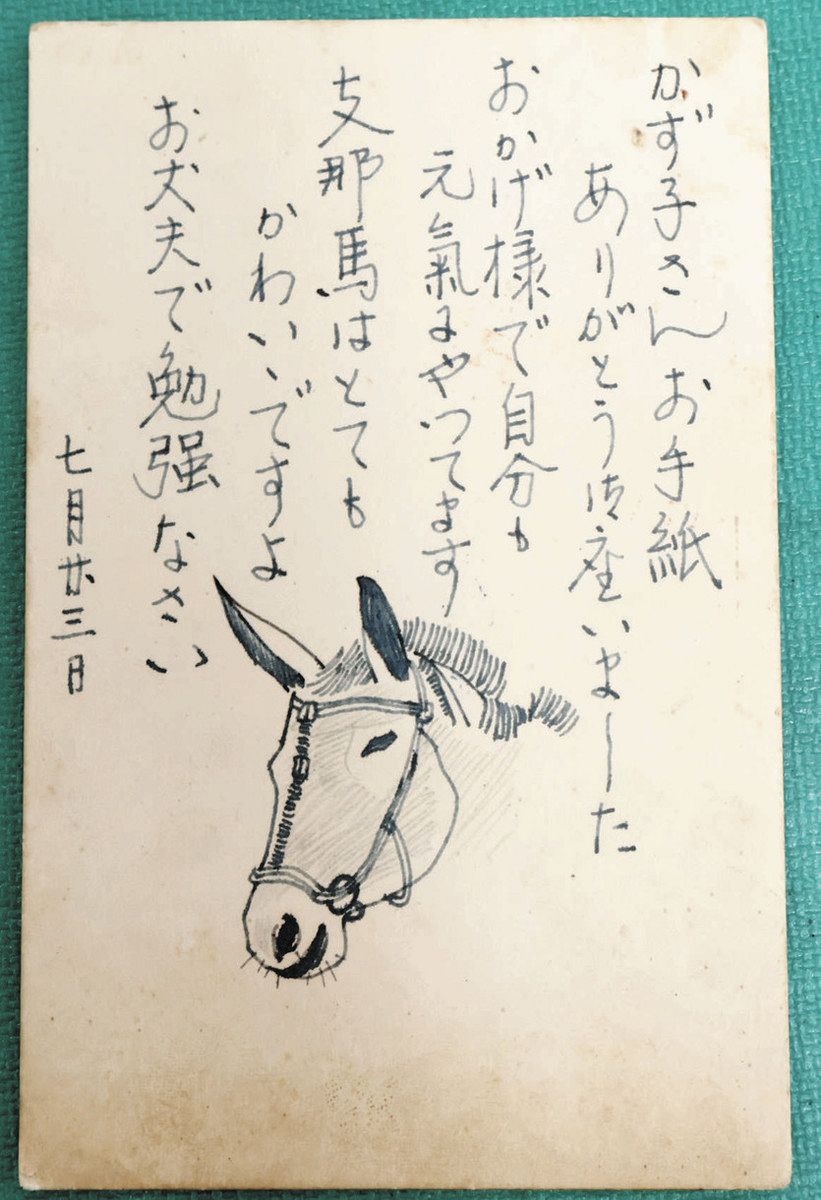 かず子さんお手紙
ありがとう御座いました
おかげ様で自分も
元氣にやつてます
支那馬はとても
かわいゝですよ
お丈夫で勉强なさい
七月廿三日